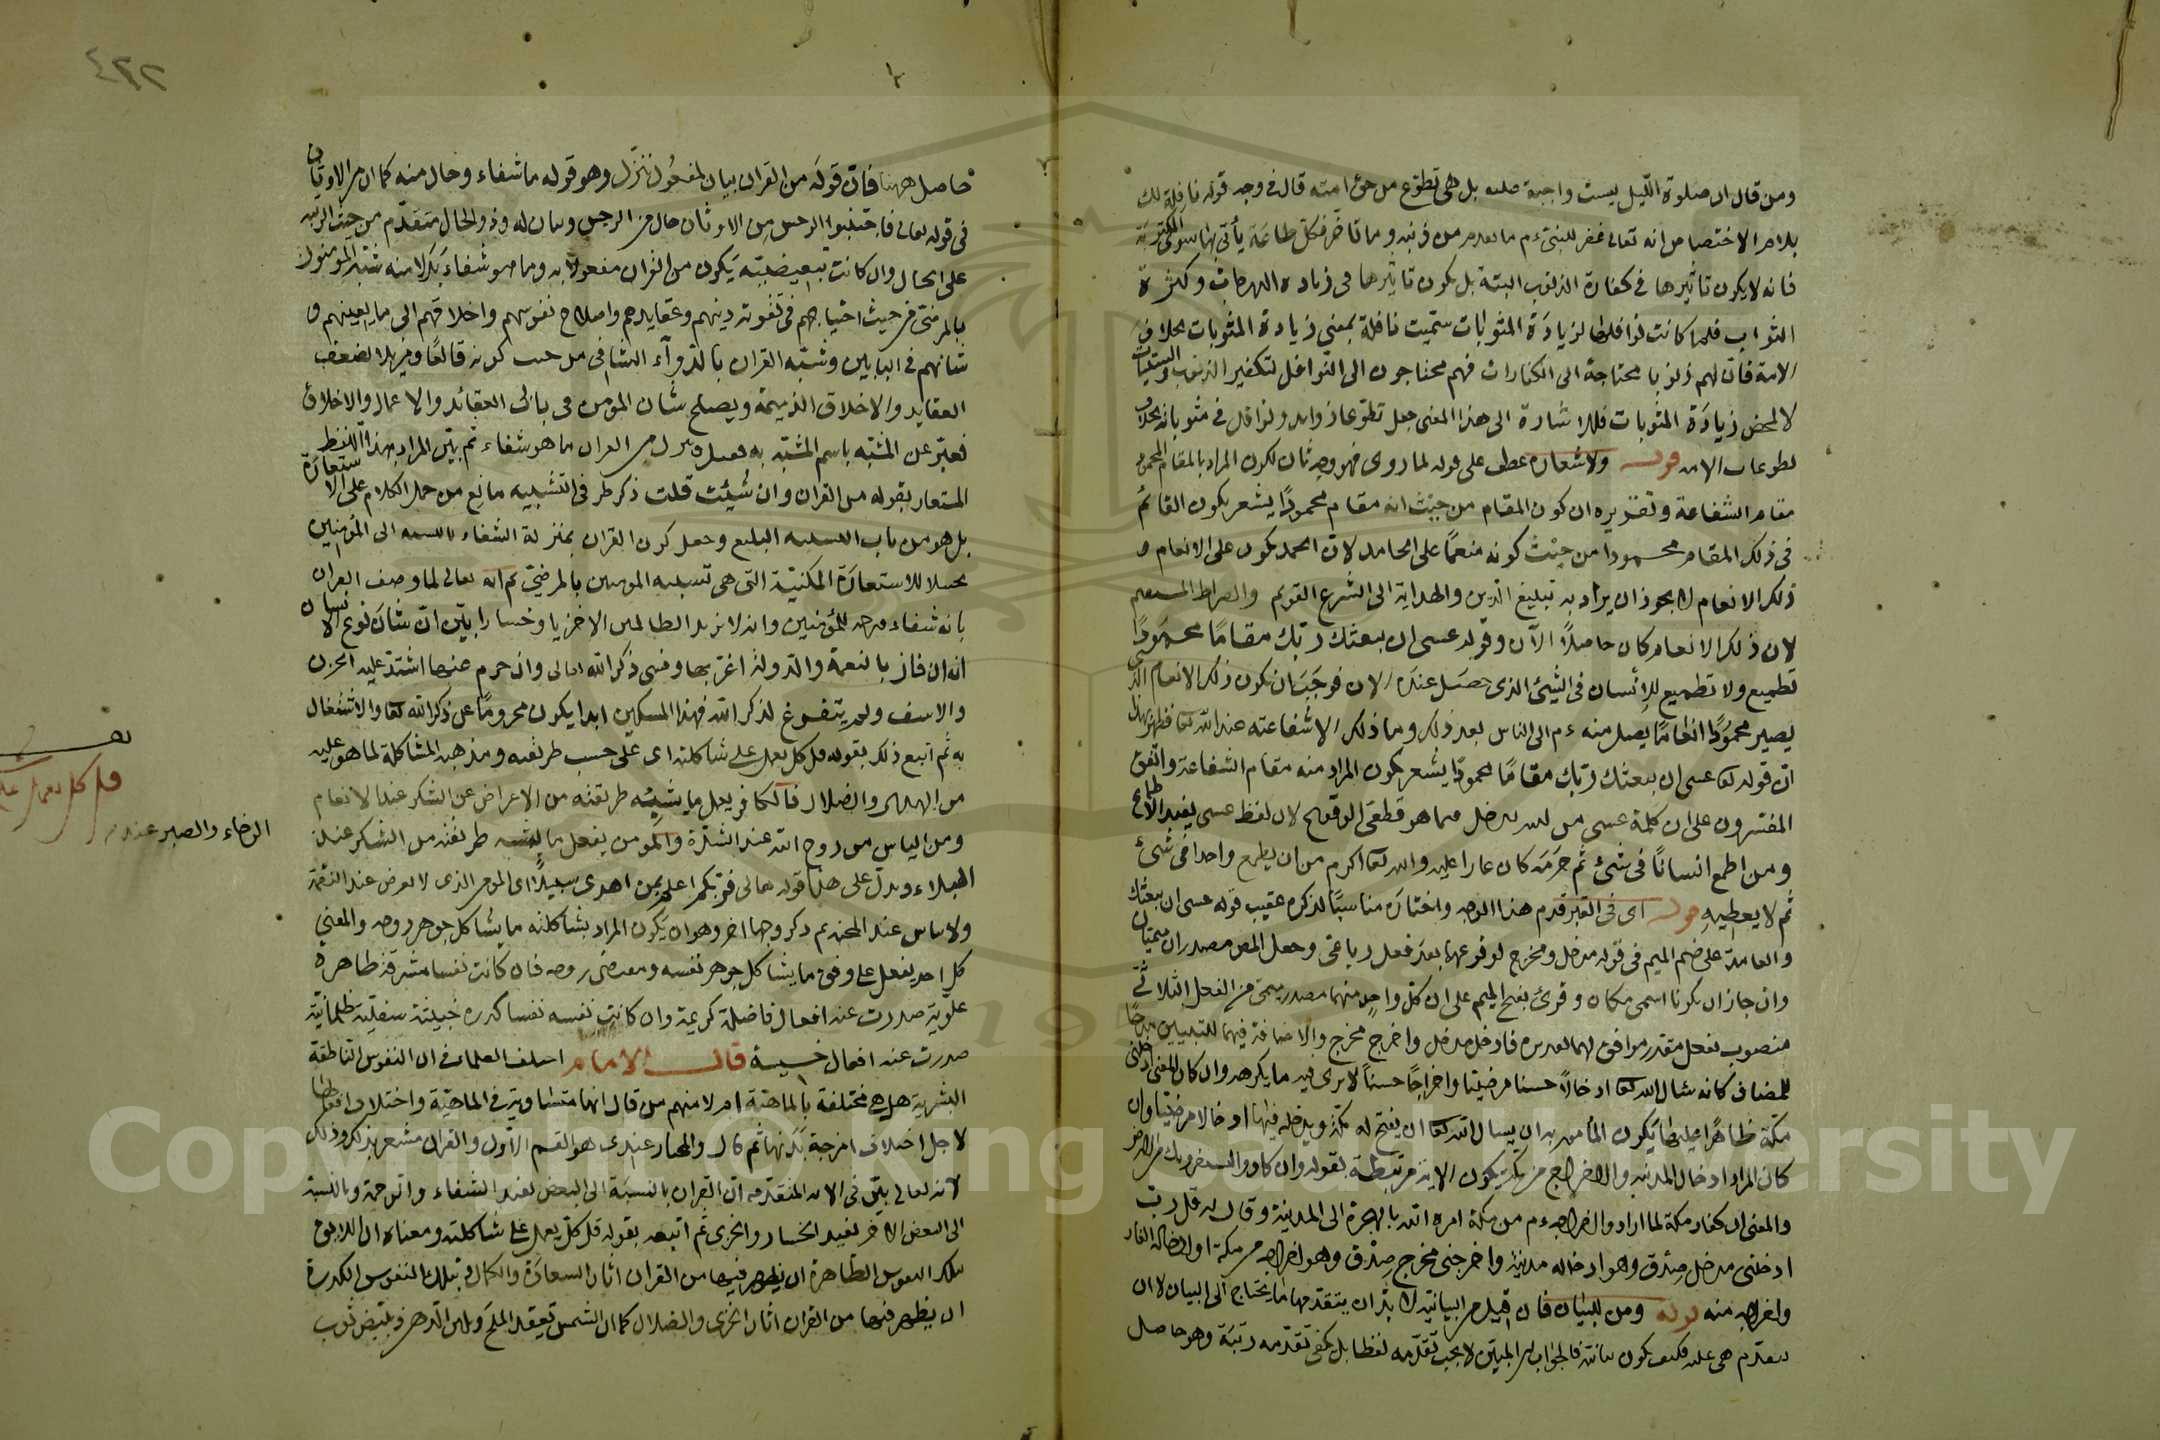 ومن قال ان صلوة الليل ليست واجبة عليه بل هى تطوع من حق امته قال فى وجه قوله نافلة لك
بلام الاختصاص انه تعالى غفر للنبى ءم ما تقدم من ذنبه وما تأخر فكل طاعة يأتى بها سوى المكتوبة
فانه لا يكون تأثيرها فى كفارة الذنوب البتة بل يكون تأثيرها فى زيادة الدرجات وكثرة
الثواب فلما كانت نوافلها لزيادة المثوبات سميت نافلة بمعنى زيادة المثوبات بخلاف
الامة فان لهم ذنوبا محتاجة الى الكفارات فهم محتاجون الى النوافل لتكفير الذنوب والسيئات
لا لمحض زيادة المثوبات فللاشارة الى هذا المعنى جعل تطوعا زوايد ونوافل فى مثوباته بخلاف
تطوعات الامة قوله ولاشعاره عطف على قوله لما روى فهو وجه ثان لكون المراد بالمقام المحمود
مقام الشفاعة وتقريره ان كون المقام من حيث انه مقام محمودا يشعر بكون القائم
فى ذلك المقام محمودا من حيث كونه منعما على الحامد لان الحمد يكون على الانعام و
ذلك الانعام لا يجوز ان يراد به تبليغ الدين والهداية الى الشرع القويم والصراط المستقيم
لان ذلك الانعام كان حاصلا الآن وقوله عسى ان يبعثك ربك مقاما محمودا
تطميع ولا تطميع للانسان فى الشئ الذى حصل عنده الان فوجب ان يكون ذلك الانعام الذى
يصير محمودا انعاما يصل منه ءم الى الناس بعد ذلك وما ذلك الا شفاعته عند الله تعا فظهر بهذا
ان قوله تعا عسى ان يبعثك ربك مقاما محمودا يشعر بكون المراد منه مقام الشفاعة واتفق
المفسرون على ان كلمة عسى من الله تدخل فيما هو قطعى الوقوع لان لفظ عسى يفيد الاطماع
ومن اطمع انسانا فى شئ ثم حرمه كان عارا عليه والله تعا اكرم من ان يطمع واحدا فى شئ
ثم لا يعطيه قوله اى فى القبر قدم هذا الوجه واختاره مناسبا لذكره عقيب قوله عسى ان يبعثك
والعامة على ضم الميم فى قوله مدخل ومخرج لوقوعهما بعد فعل رباعى وجعل المص مصدران ميميان
وان جاز ان يكونا اسمى مكان وقرئ بفتح الميم على ان كل واحد منهما مصدر ميمى من الفعل الثلاثى
منصوب بفعل مقدر موافق لهما تقديره فادخل مدخل واخرج مخرج والاضافة فيهما للتبيين مدخا
للمضاف كانه سئال الله تعا ادخالا حسنا مرضيا واخراجا حسنا لا يرى فيه ما يكرهه وان كان المعنى ادخلنى
مكة ظاهرا عليها يكون المأمور به ان يسال الله تعا ان يفتح له مكة ويدخله فيها ادخالا مرضيا وان
كان المراد ادخال المدينة والاخراج من مكة يكون الاية مرتبطة بقوله وان كادوا ليستفزونك من الارض
والمعنى ان كفار مكة لما ارادوا اخراجه ءم من مكة امره الله بالهجرة الى المدينة وقال له قل رب
ادخلنى مدخل صدق وهو ادخاله مدينة واخرجنى مخرج صدق وهو اخراجه من مكة او ادخاله الغار
واخراجه منه قوله ومن للبيان فان قيل من البيانية لا بد ان يتقدمها ما يحتاج الى البيان لا ان
يتقدم هى عليه فكيف يكون بيانية فالجواب ان المبين لا يجب تقدمه لفظا بل يكفى تقدمه رتبة وهو حاصل
٤٢٢
حاصل ههنا فان قوله من القران بيان لمفعول ننزل وهو قوله ما شفاء وحال منه كما ان من الاوثان
فى قوله تعالى فاجتنبوا الرجس من الاوثان حال من الرجس وبيان له وذو الحال متقدم من حيث الرتبة
على الحال وان كانت تبعيضية يكون من القران مفعولا به وما هو شفاء بدلا منه شبه المومنون
بالمرضى من حيث احتياجهم فى تقوية دينهم وعقايدهم واصلاح نفوسهم واخلاقهم الى ما يعينهم و
شانهم فى البابين وشبه القران بالدواء الشافى من حيث كونه قالعا ومزيلا لضعف
العقايد والاخلاق الذميمة ويصلح شان المؤمن فى بابى العقائد والاعمال والاخلاق
فعبر عن المشبه باسم المشبه به فقيل وننزل من القران ما هو شفاء ثم بين المراد بهذا اللفظ
المستعار بقوله من القران وان شئت قلت ذكر طرفى التشبيه مانع من حمل الكلام على الاستعارة
بل هو من باب التشبيه البليغ وجعل كون القران بمنزلة الشفاء بالنسبة الى المؤمنين
تخييلا للاستعارة المكنية التى هى تشبيه المومنين بالمرضى ثم انه تعالى لما وصف القران
بانه شفاء ورحمة للمؤمنين وانه لا يزيد الظالمين الا خزيا وخسارا بين ان شان نوع الانسان
انه ان فاز بالنعمة والدولة اغتر بها ونسى ذكر الله تعالى وان حرم عنها اشتد عليه الحزن
والاسف ولم يتفرغ لذكر الله فهذا المسكين ابدا يكون محروما عن ذكر الله تعا والاشتغال
به ثم اتبع ذلك بقوله قل كل يعمل على شاكلته اى على حسب طريقته ومذهبه المشاكلة لما هو عليه
من الهدى والضلال فالكافر يعمل ما يشبه طريقته من الاعراض عن الشكر عند الانعام
ومن الياس من روح الله عند الشدة والمومن يفعل ما يشبه طريقته من الشكر عند
الرخاء والصبر عند
البلاء ويدل على هذا قوله تعالى فربكم اعلم بمن هو اهدى سبيلا اى المومن الذى لا يعرض عند النعمة
ولا يياس عند المحنة ثم ذكر وجها اخر وهو ان يكون المراد بشاكلته ما يشاكل جوهر روحه والمعنى
كل احد يفعل على وفق ما يشاكل جوهر نفسه ومقتضى روحه فان كانت نفسا مشرقة طاهرة
علوية صدرت عنه افعال فاضلة كريمة وان كانت نفسه نفسا كدرة خبيثة سفلية ظلمانية
صدرت عنه افعال خسيسة قال الامام اختلف العلماء فى ان النفوس الناطقة
البشرية هل هى مختلفة بالماهية ام لا منهم من قال انها متساوية فى الماهية واختلاف افعالها
لاجل اختلاف امزجة بدنها ثم قال والمختار عندى هو القسم الاول والقران مشعر بذلك وذلك
لانه تعالى بين فى الاية المتقدمة ان القران بالنسبة الى البعض يفيد الشفاء والرحمة وبالنسبة
الى البعض الاخر يفيد الخسار والخزى ثم اتبعه بقوله قل كل يعمل على شاكلته ومعناه ان اللائق
بتلك النفوس الطاهرة ان يظهر فيها من القران اثار السعادة والكمال وبتلك النفوس الكدرة
ان يظهر فيها من القران اثار الخزى والضلال كما ان الشمس تعقد الملح وتلين الدهن وتبيض ثوب
قل كل يعمل على
Copyright © King Saud University
1957